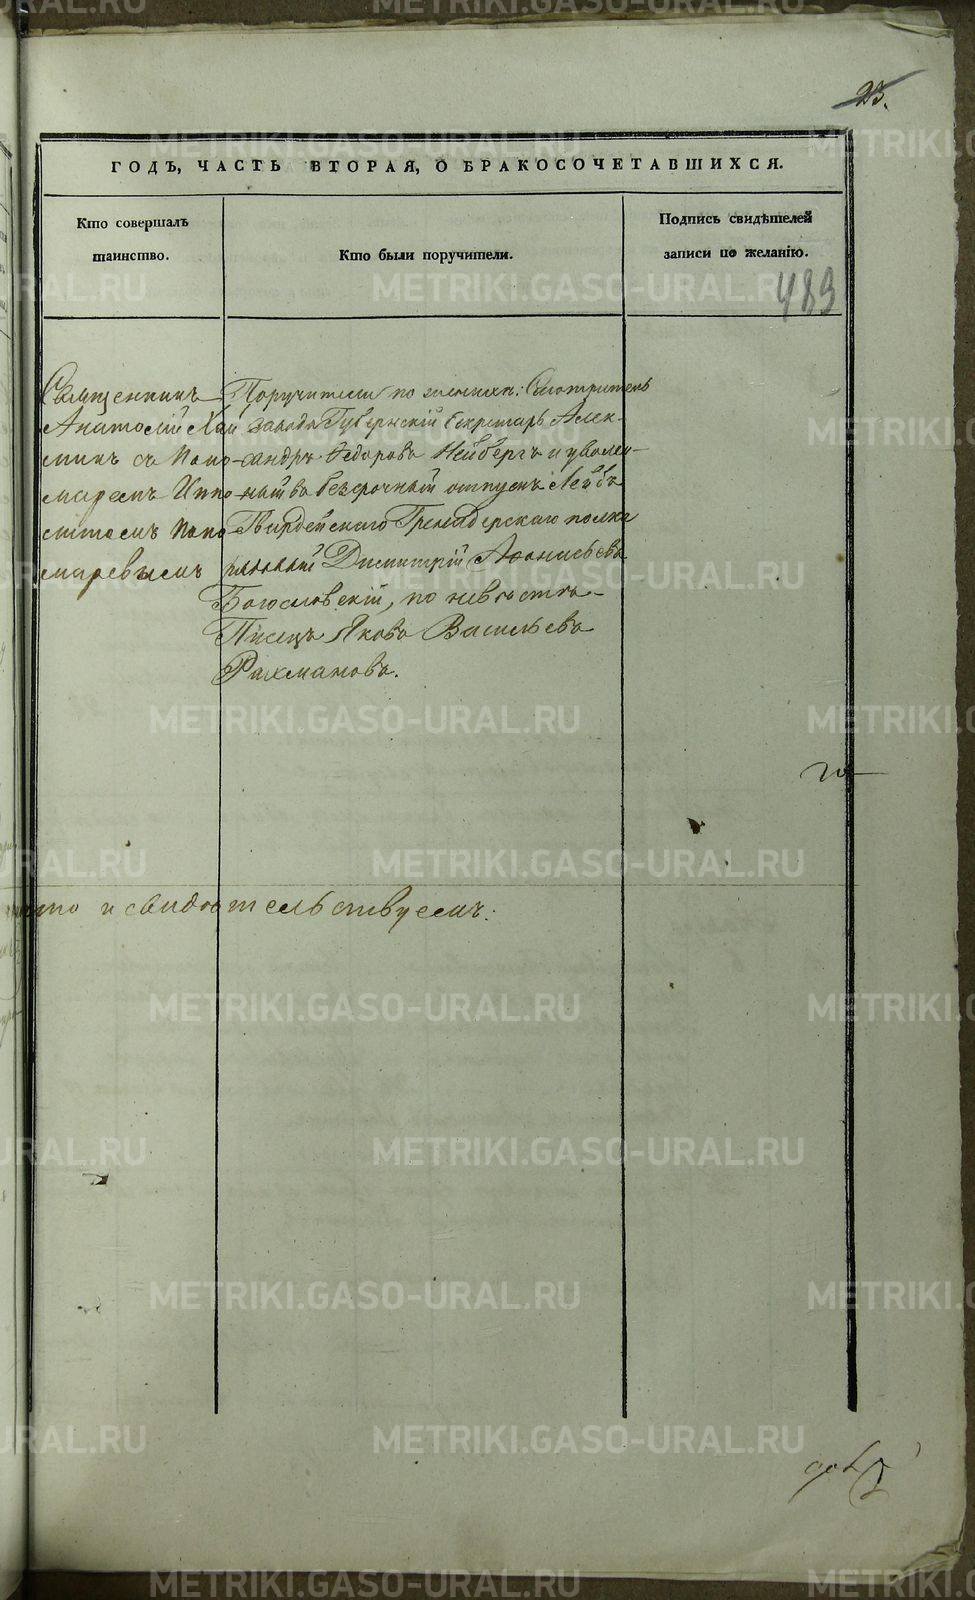 23.
ГОДЪ, ЧАСТЬ ВТОРАЯ, О БРАКОСОЧЕТАВШИХСЯ.
Кто совершалъ
таинство.
Кто были поручители.
Подпись свидѣтелей
записи по желанію.
483
Священникъ
Анатолій Хай
минъ съ Поно
маремъ Иппо
литомъ Поно
маревымъ
Поручители по женихѣ: Смотритель
завода Губернскій Секретарь Алек-
сандръ Ѳедоровъ Нейбергъ и уволен-
ный въ безсрочный отпускъ Лейбъ
Гвардейскаго Гренадерскаго полка
рядовой Димитрій Аѳонасьевъ
Богословскій, по невѣстѣ-
Писецъ Яковъ Васильевъ
Рахмановъ.
то и свидѣтельствуемъ.
METRIKI.GASO-URAL.RU